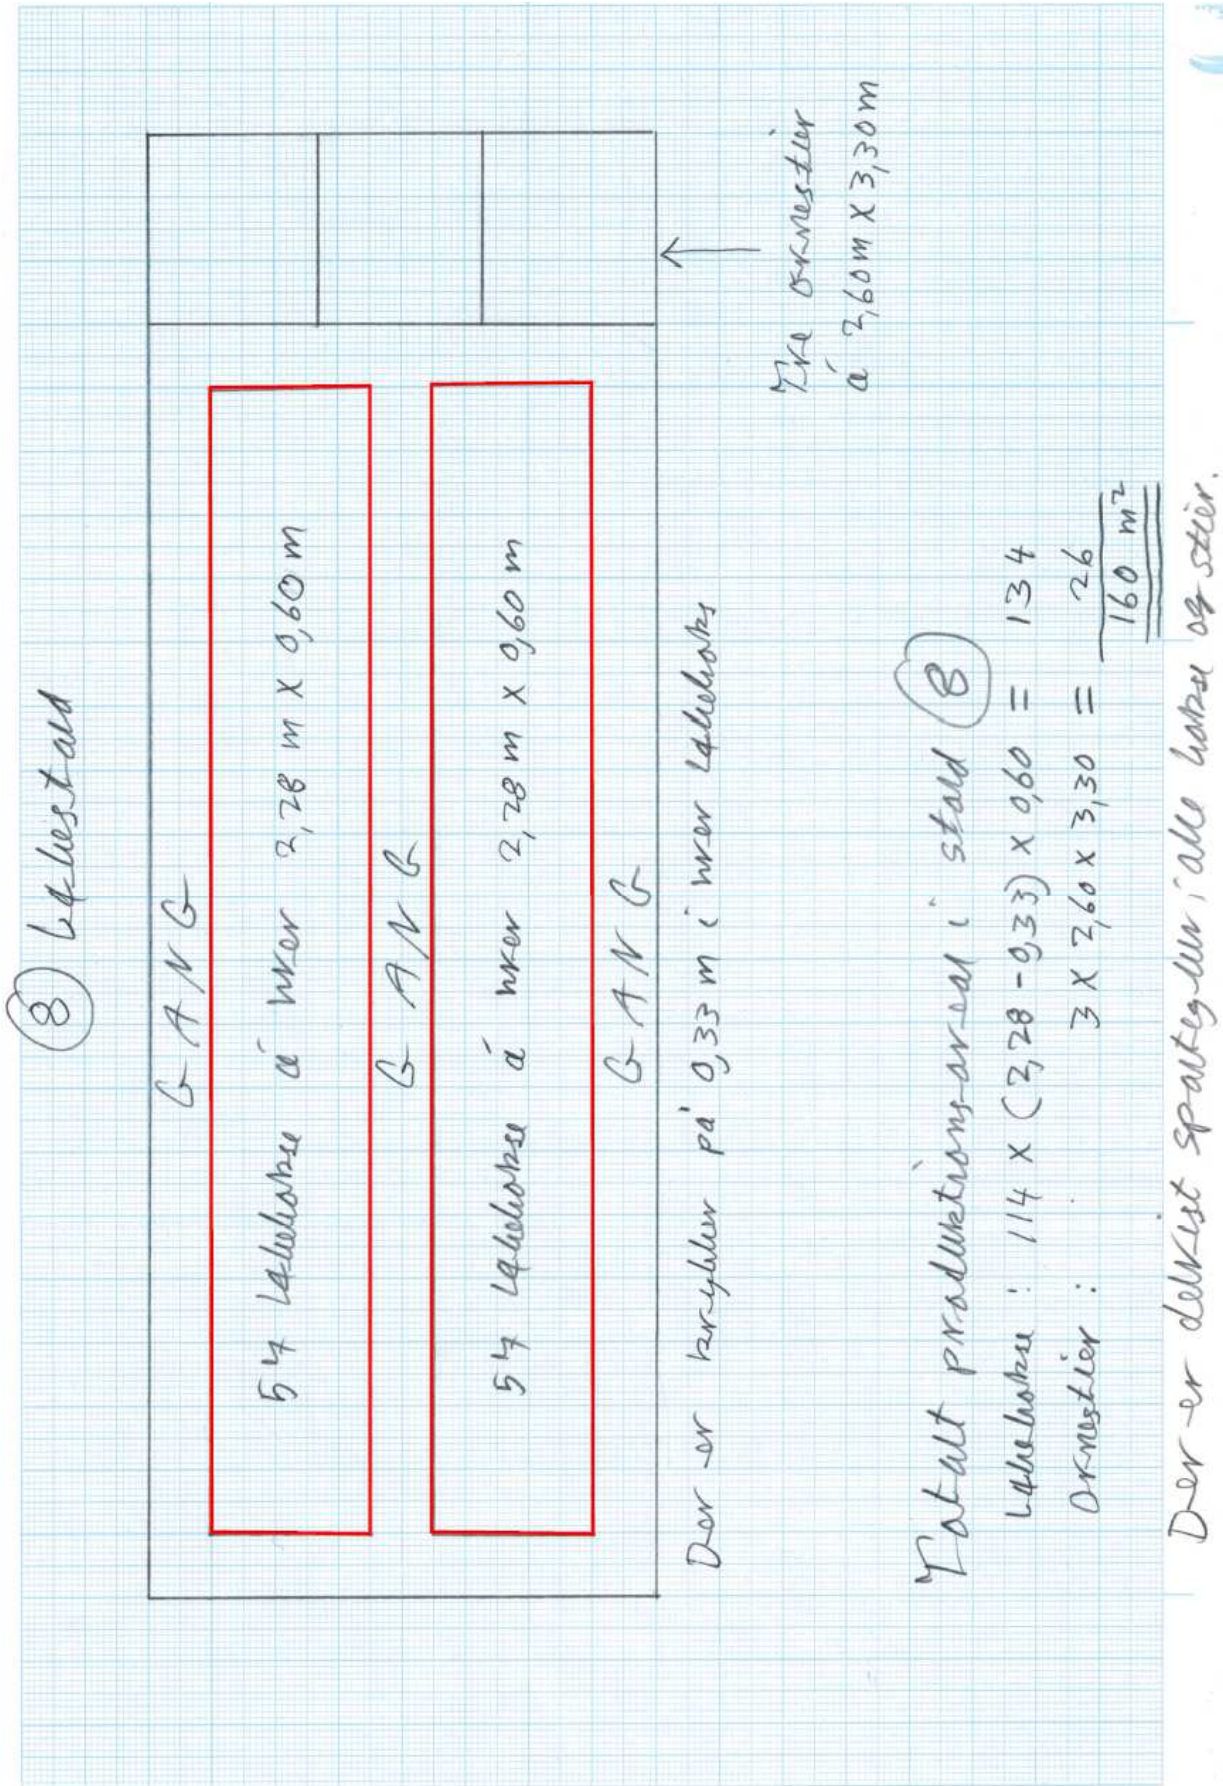 ⑧ Løbestald
GANG
54 løbebokse á hver 2,28 m x 0,60 m
GANG
54 løbebokse á hver 2,28 m x 0,60 m
GANG
Tre ornestier
á 2,60 m x 3,30 m
Der er krybber på 0,33 m i hver løbeboks
Totalt produktionsareal i stald ⑧
Løbebokse : 114 x (2,28 - 0,33) x 0,60 = 134
Ornestier : 3 x 2,60 x 3,30 = 26
160 m²
Der er delvist spaltegulv i alle bokse og stier.